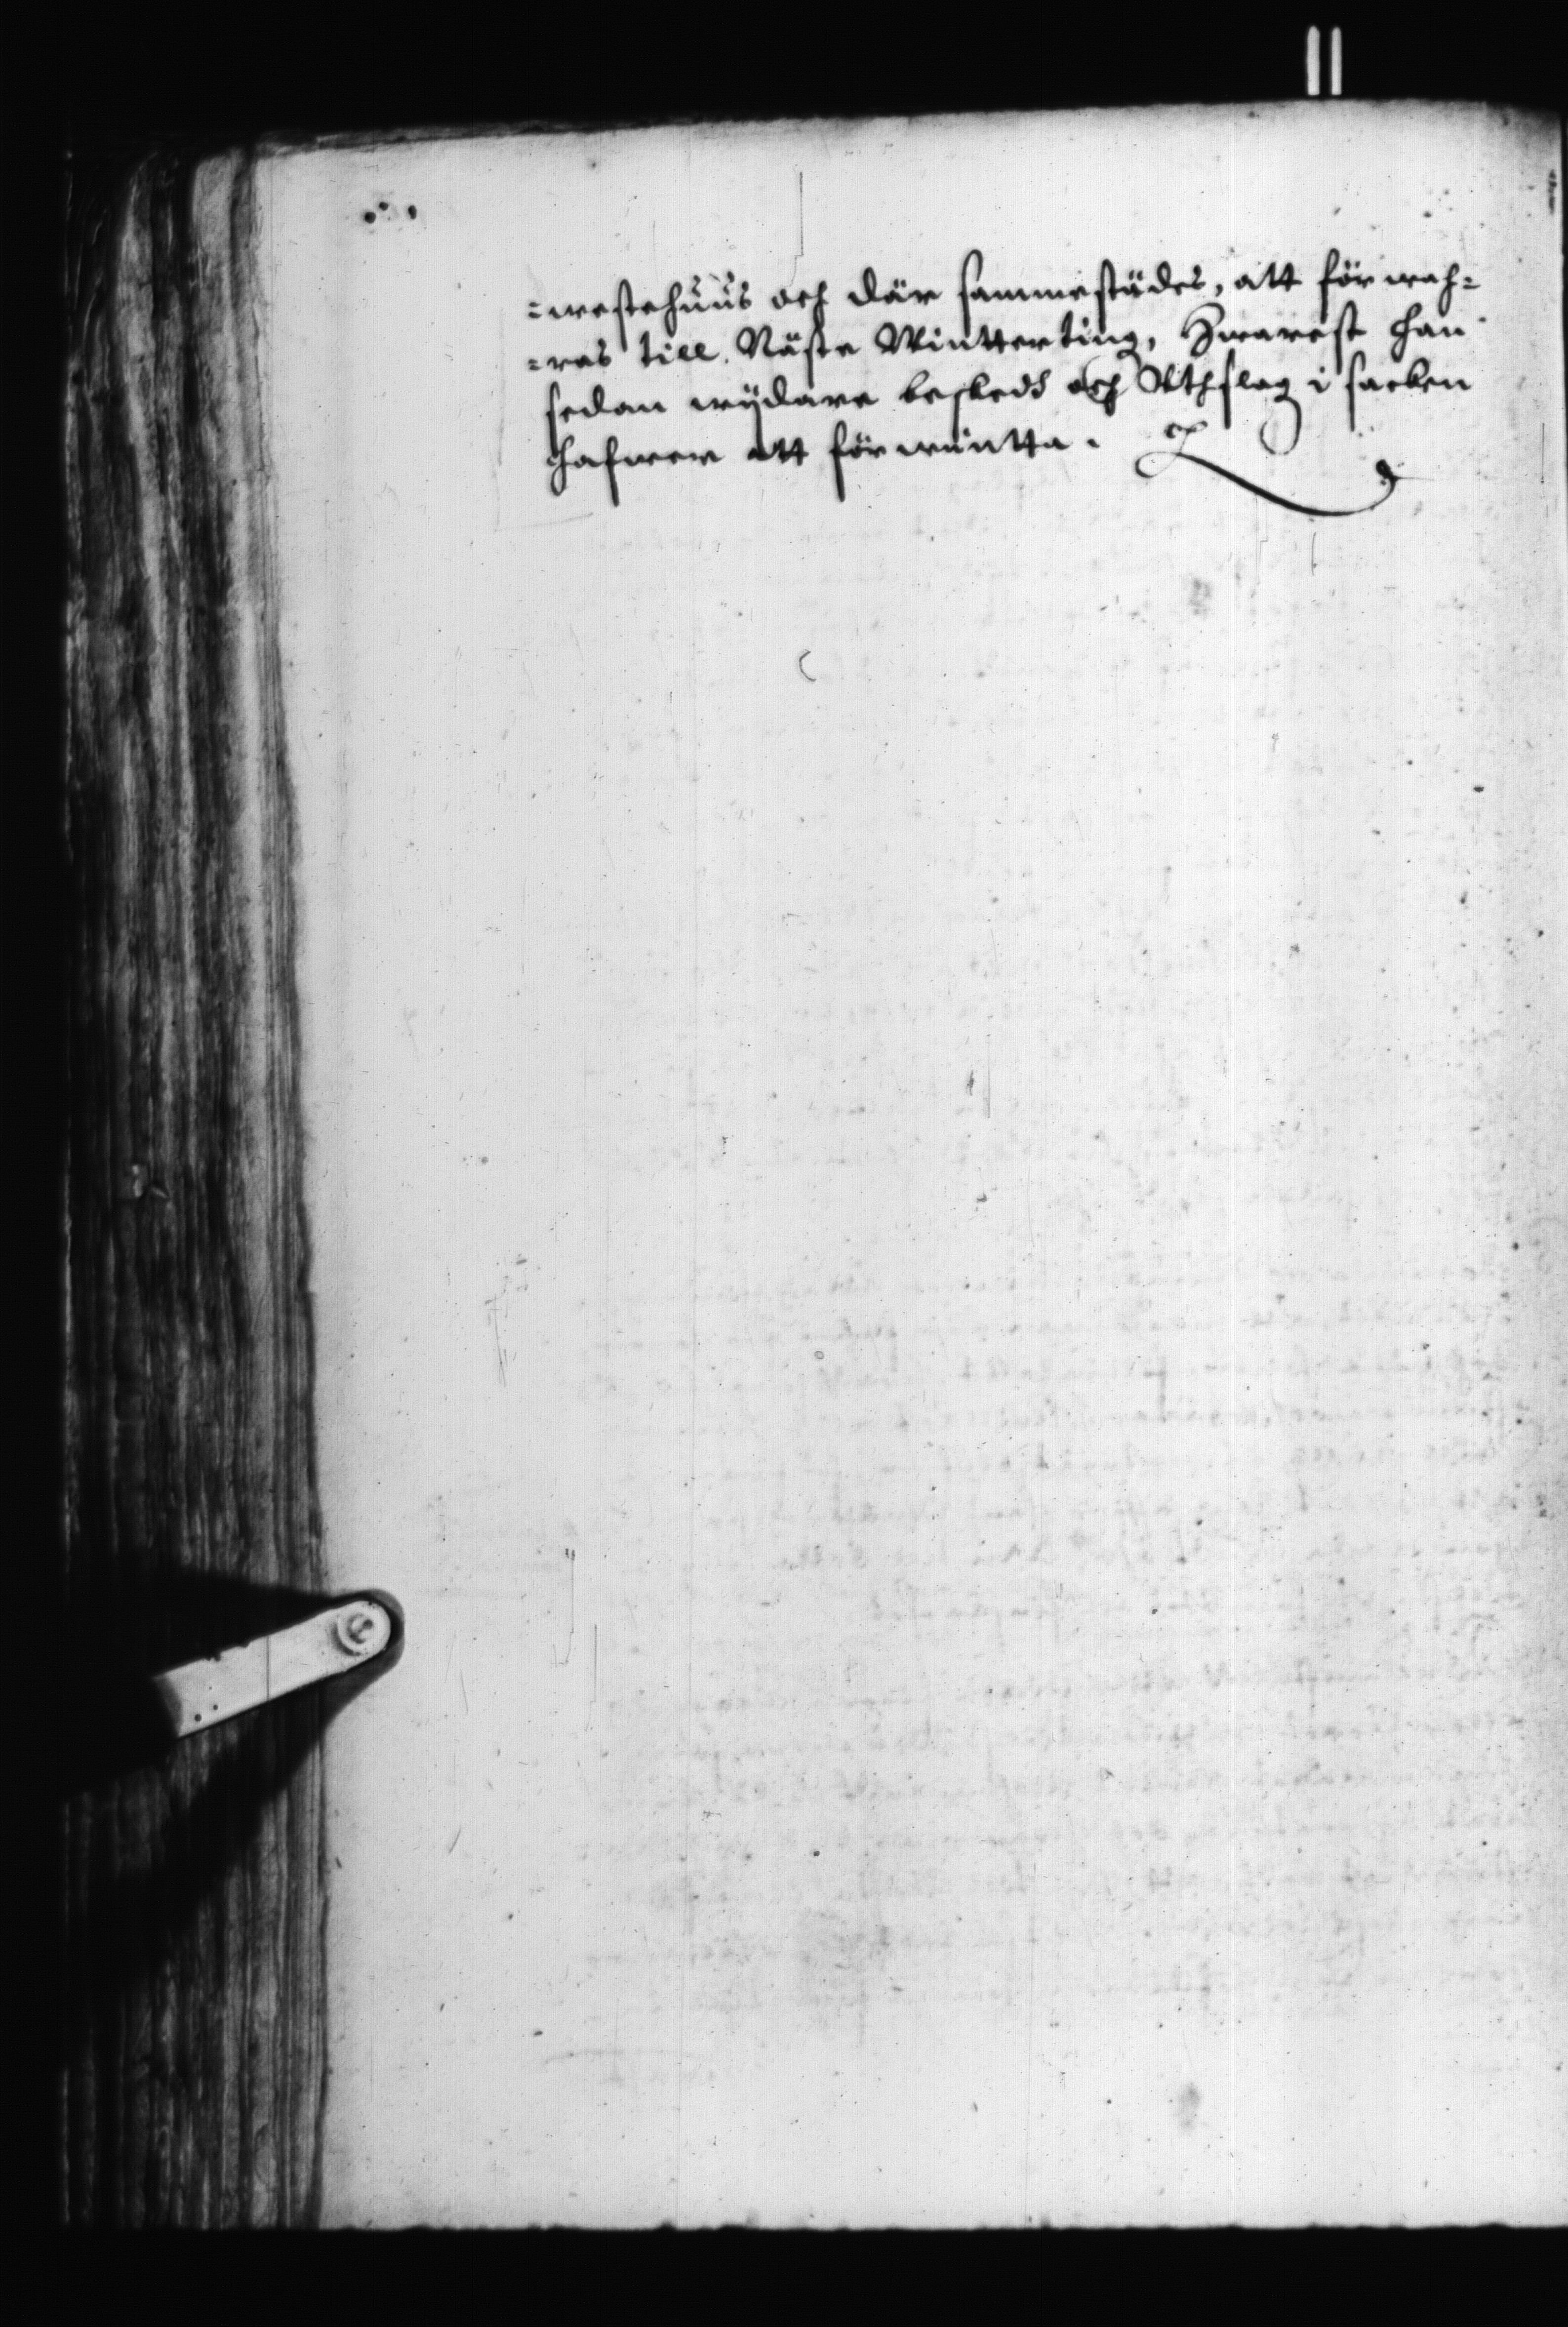 =westehuus och där sammestädes, att förwah=
=ras till Näste Winterting, Hwarest han
sedan wijdare beskedh och Uthslag i sacken
hafwer att förwäntta.